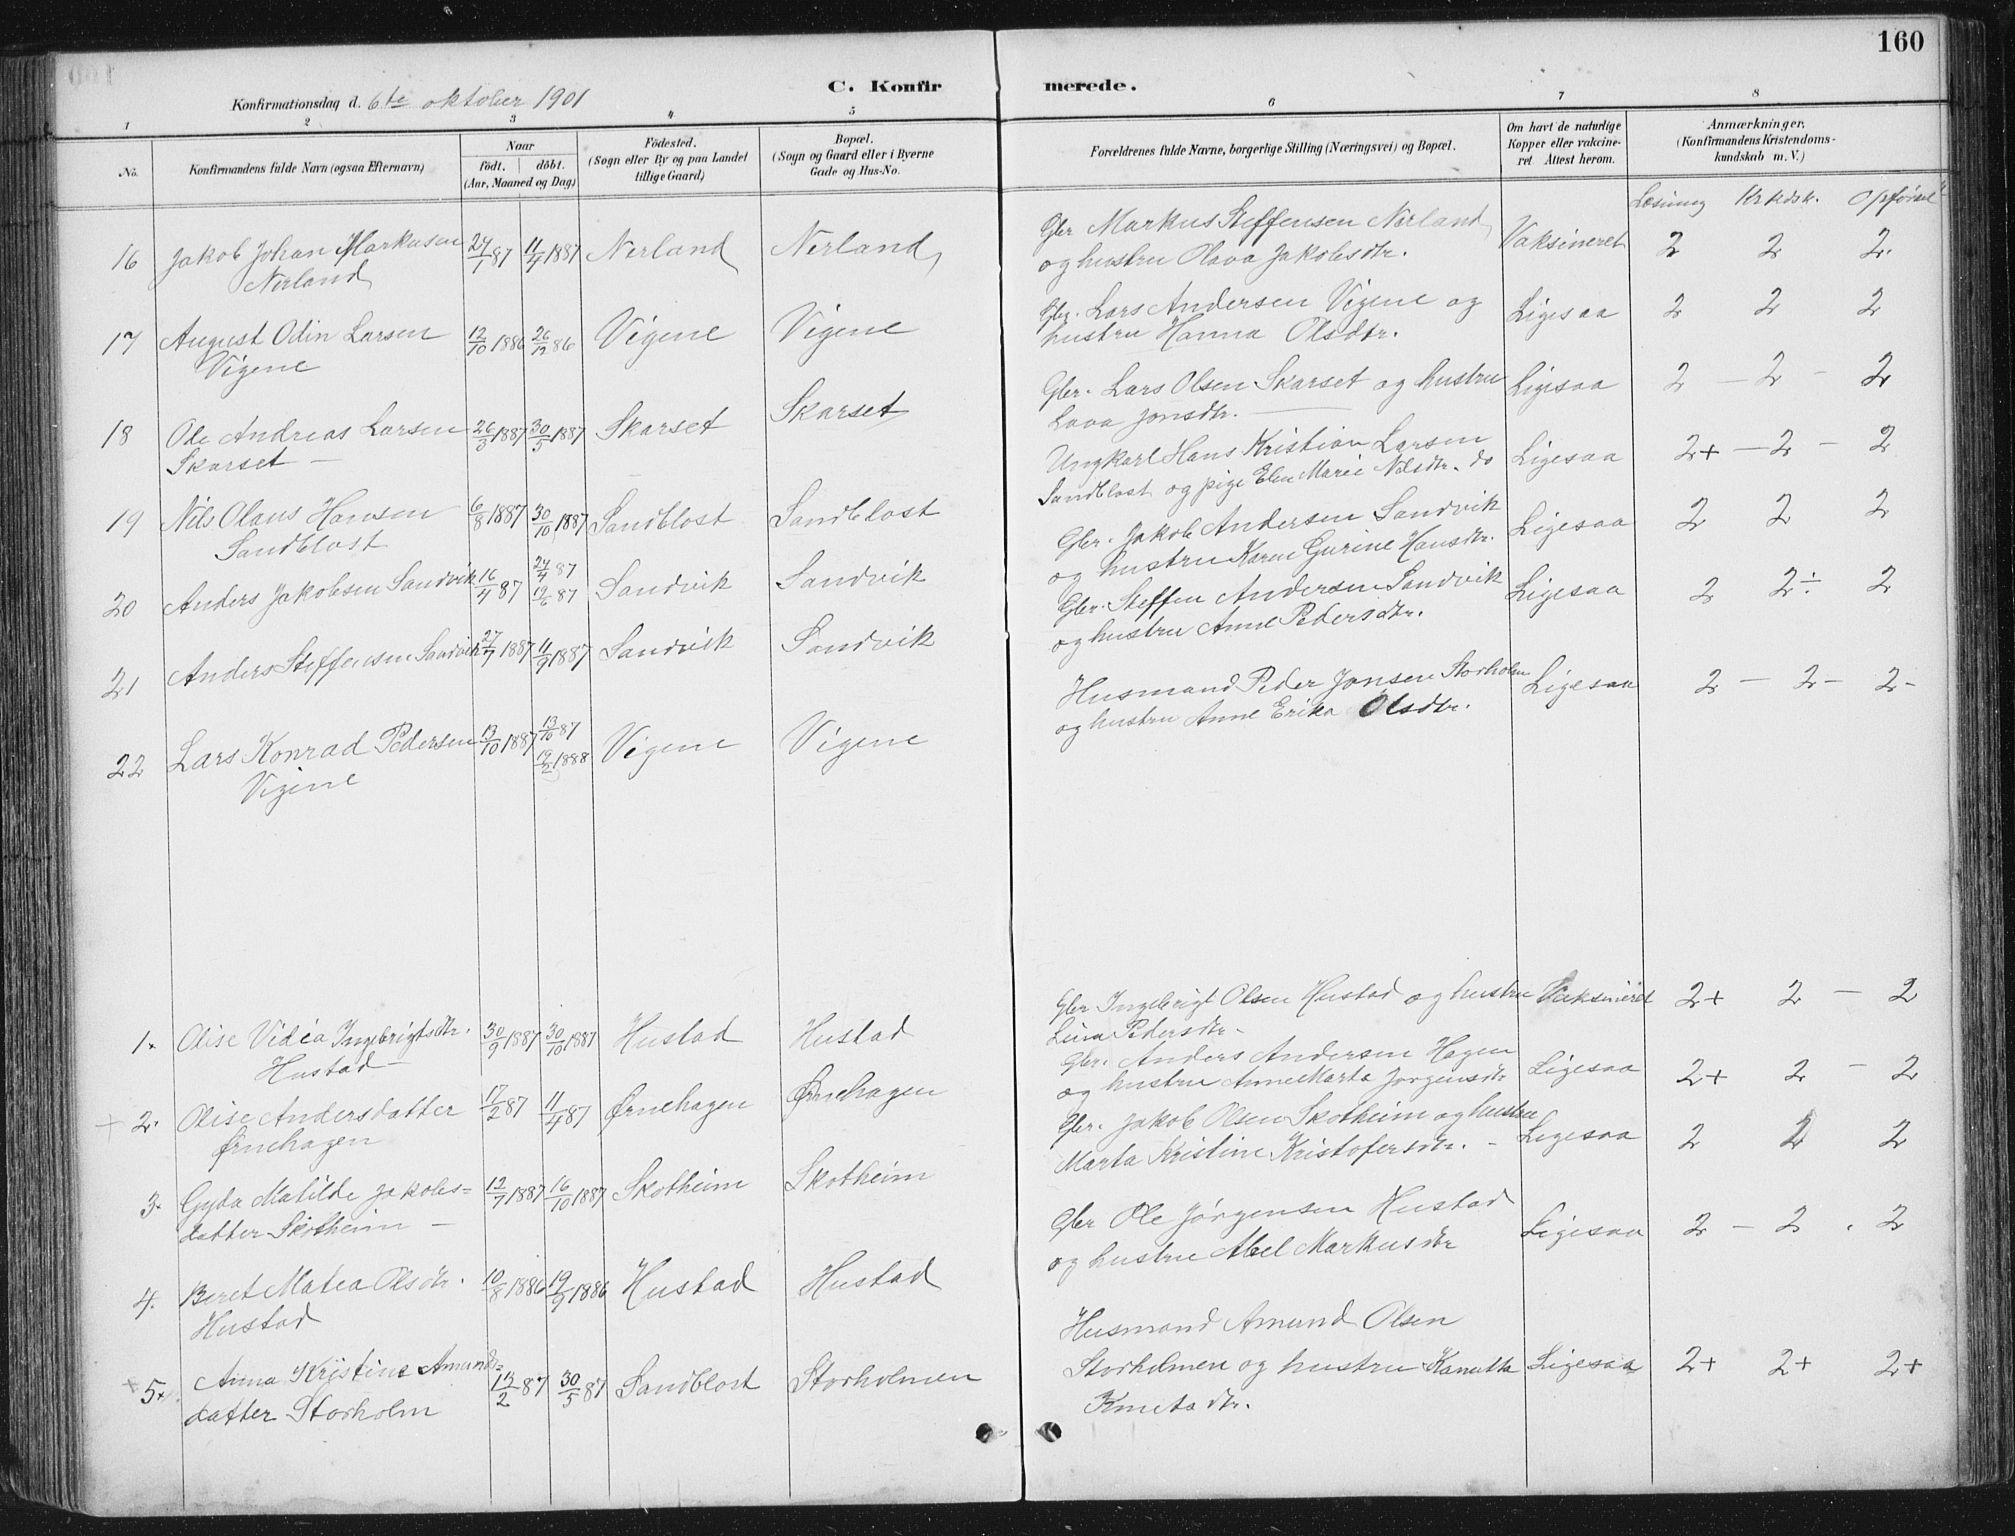 160
C. Konfirmerede.
Konfirmationsdag d. 6te oktober 1901
1 2 3 4 5 6 7 8
No.
Konfirmandens fulde Navn (ogsaa Efternavn)
Naar
födt. döbt.
(Aar, Maaned og Dag)
Födested.
(Sogn eller By og paa Landet
tillige Gaard)
Bopæl.
(Sogn og Gaard eller i Byerne
Gade og Hus-No.
Forældrenes fulde Navne, borgerlige Stilling (Næringsvei) og Bopæl.
Om havt de naturlige
Kopper eller vakcine-
ret Attest herom.
Anmærkninger.
(Konfirmandens Kristendoms-
kundskab m. V.)
Læsning Krkdsk. Opførsel
16 Jakob Johan Markusen 24/1 87 11/4 1887 Nerland Nerland Gbr Markus Steffensen Nerland Vaksineret 2 2 2.
Nerland og hustru Olava Jakobsdtr.
17 August Odin Larsen 12/10 1886 26/12 86 Vigene Vigene Gbr. Lars Andersen Vigene og Ligesaa 2 2 2
Vigene hustru Hanna Olsdtr.
18 Ole Andreas Larsen 26/3 1887 30/5 1887 Skarset Skarset Gbr. Lars Olsen Skarset og hustru Ligesaa 2 – 2 – 2
Skarset – Lava Jonsdtr. –
19 Nils Olaus Hansen 6/8 1887 30/10 1887 Sandblost Sandblost Ungkarl Hans Kristian Larsen Ligesaa 2+ – 2 – 2
Sandblost Sandblost og pige Elen Marie Nilsdtr. do
20 Anders Jakobsen Sandvik 16/4 87 24/4 87 Sandvik Sandvik Gbr. Jakob Andersen Sandvik Ligesaa 2 2 2
12/6 87 og hustru Karen Gurine Hansdtr.
21 Anders Steffensen Sandvik 27/7 1887 11/9 1887 Sandvik Sandvik Gbr. Steffen Andersen Sandvik Ligesaa 2 2÷ 2
og hustru Anne Pedersdtr.
22 Lars Konrad Pedersen 13/10 1887 13/10 87 Vigene Vigene Husmand Peder Jonsen Storholm Ligesaa 2 – 2 – 2 –
Vigene 12/2 1888 og hustru Anne Erika Olsdtr.
1. Olise Vidéa Ingebrigtsdtr. 30/9 1887 30/10 1887 Hustad Hustad Gbr Ingebrigt Olsen Hustad og hustru Vaksineret 2+ 2 – 2
Hustad Lina Pedersdtr –
+ 2. Olise Andersdatter 17/2 87 11/4 87 Ørnehagen Ørnehagen Gbr. Anders Andersen Hagen Ligesaa 2+ 2 – 2
Ørnehagen og hustru Anne Marta Jørgensdtr
3. Gyda Matilde Jakobs= 12/7 1887 16/10 1887 Skotheim Skotheim Gbr. Jakob Olsen Skotheim og hustru Ligesaa 2 2 2
datter Skotheim – Marta Kristine Kristofersdtr. –
4. Beret Matea Olsdtr. 10/8 1886 19/9 1886 Hustad Hustad Gbr Ole Jørgensen Hustad Ligesaa 2 – 2 . 2
Hustad og hustru Abel Markusdtr
+ 5. Anna Kristine Amunds= 13/2 87 30/5 87 Sandblost Storholmen Husmand Amund Olsen
datter Storholm Storholmen og hustru Kanutta Ligesaa 2+ 2+ 2+
Knutsdtr.